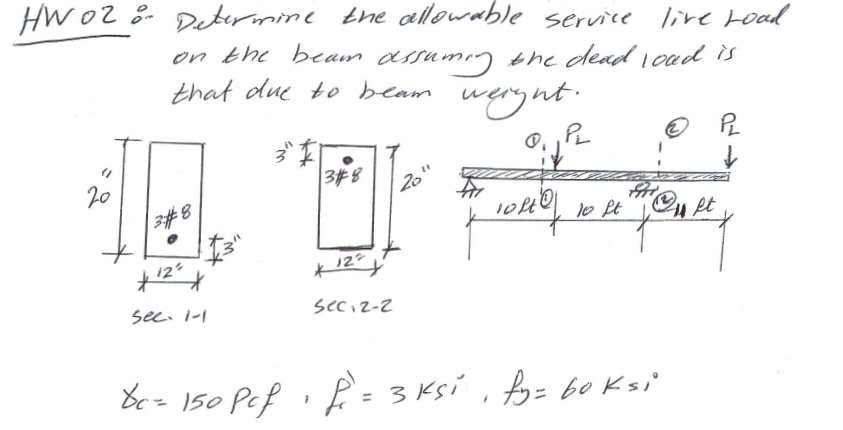 HW 02 :- Determine the allowable service live Load
on the beam assuming the dead load is
that due to beam weight.
20"
3#8
3"
12"
sec. 1-1
3"
3#8
20"
12"
sec. 2-2
① PL
② PL
①
②
10 ft 10 ft 11 ft
γc = 150 Pcf , f'c = 3 Ksi , fy = 60 Ksi